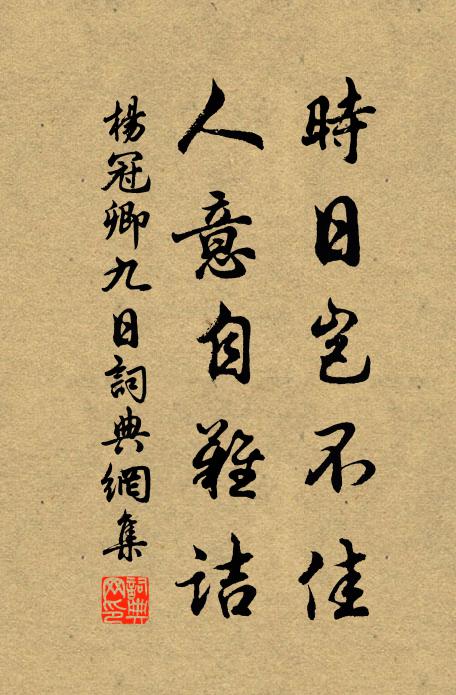 時日豈不佳
人意自難詰
楊冠卿九日詞典網集
詞典網印